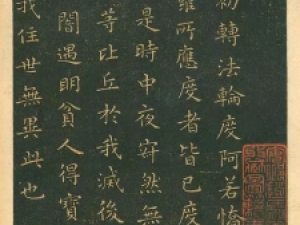 初轉法輪度阿若憍
羅所應度者皆已度
是時中夜寂然無
等比丘於我滅後
闇遇明貧人得寶
我住世無異此也